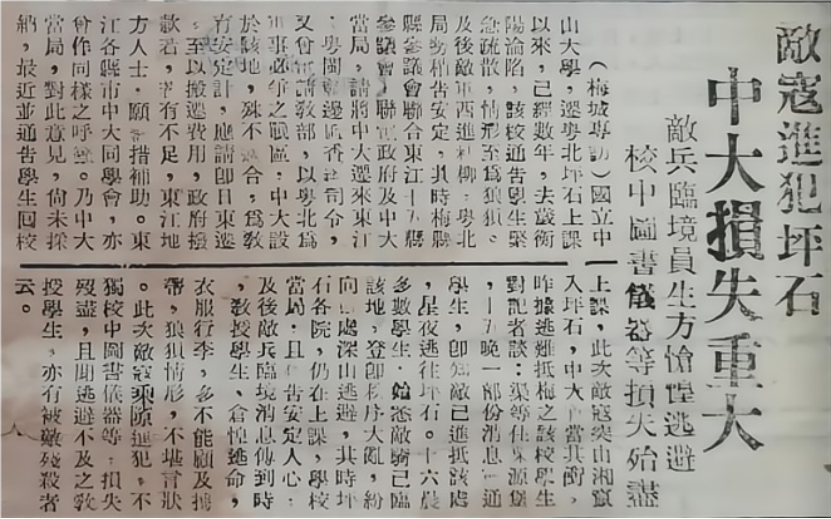 敵寇進犯坪石
中大損失重大
敵兵臨境員生方愴惶逃避
校中圖書儀器等損失殆盡
（梅城專訪）國立中
山大學，遷粵北坪石上課
以來，已經數年，去歲衡
陽淪陷，該校通告學生緊
急疏散，情形至爲狼狽。
及後敵軍西進桂柳，粵北
局勢稍告安定，其時梅縣
縣參議會聯合東江十五縣
參議會，聯電政府及中大
當局，請將中大遷來東江
，粵閩邊區香司令，
又曾電請敎部，以粵北爲
軍事必爭之戰區，中大設
於該地，殊不適合，爲敎
育安定計，應請卽日東遷
。至以搬遷費用，政府撥
款若，有不足，東江地
方人士，願措補助。東
江各縣市中大同學會，亦
曾作同樣之呼籲。乃中大
當局，對此意見，尙未採
納，最近並通告學生囘校
上課，此次敵寇突由湘竄
入坪石，中大首當其衝，
昨據逃難抵梅之該校學生
對記者談：渠等住源堡
，十五晚一部份消息通
學生，卽知敵已進抵該處
，星夜逃往坪石。十六晨
多數學生，始悉敵騎已臨
該地，登卽秩序大亂，紛
向處深山逃避，其時坪
石各院，仍在上課，學校
當局，且告安定人心，
及後敵兵臨境消息傳到時
，敎授學生，倉惶逃命，
衣服行李，多不能顧及攜
帶，狼狽情形，不堪言狀
。此次敵寇乘隙進犯，不
獨校中圖書儀器等，損失
殆盡，且聞逃避不及之敎
授學生，亦有被敵殘殺者
云。